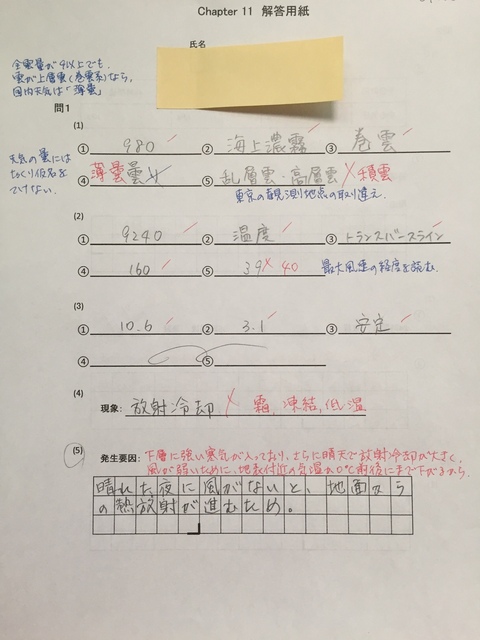 Chapter 11 解答用紙
氏名
全雲量が9以上でも、
雲が上層雲(巻雲系)なら、
国内天気は「薄曇」
問1
(1)
① 980 ② 海上濃霧 ③ 巻雲
天気の曇には
おくり仮名を
つけない。
④ 薄曇 曇り ⑤ 乱層雲・高層雲 積雲
東京の観測地点の取り違え。
(2)
① 9240 ② 温度 ③ トランスバースライン
④ 160 ⑤ 39 40 最大風速の経度を読む。
(3)
① 10.6 ② 3.1 ③ 安定
④ ⑤
(4)
現象: 放射冷却 霜, 凍結, 低温
(5)
発生要因: 下層に強い寒気が入っており、さらに晴天で放射冷却が大きく、
風が弱いために、地表付近の気温が0℃前後にまで下がるから。
晴れた夜に風がないと、地面から
の熱放射が進むため。